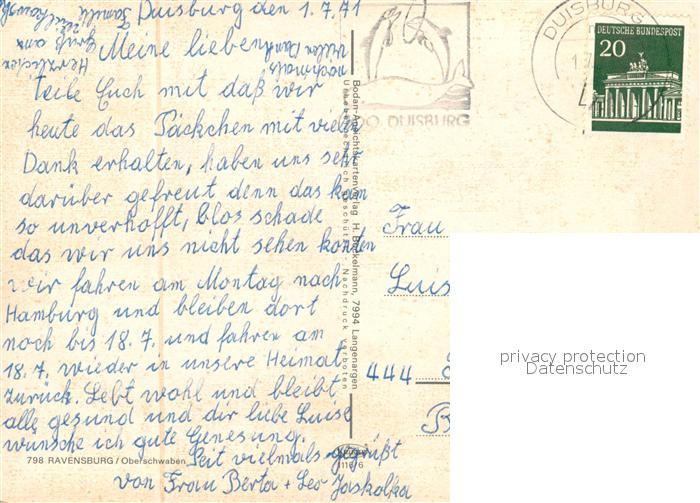 Duisburg den 1.7.71
Meine lieben
Teile Euch mit daß wir
heute das Päckchen mit vielen
Dank erhalten, haben uns sehr
darüber gefreut denn das kam
so unverhofft, blos schade
das wir uns nicht sehen konten
wir fahren am Montag nach
Hamburg und bleiben dort
noch bis 18.7. und fahren am
18.7. wieder in unsere Heimat
zurück. Lebt wohl und bleibt
alle gesund und dir liebe Luise
wünsche ich gute Genesung.
Seit vielmals gegrüßt
von Frau Berta + Leo Jaskolka
nochmals
vielen Dank
Herzlicher
Gruß an
Familie
798 RAVENSBURG / Oberschwaben
Bodan-Ansichtskartenverlag H. Bockelmann, 7994 Langenargen
Urheberrechtlich geschützt - Nachdruck verboten
DUISBURG
ZOO DUISBURG
DEUTSCHE BUNDESPOST
20
Frau
Luis
444
B
privacy protection
Datenschutz